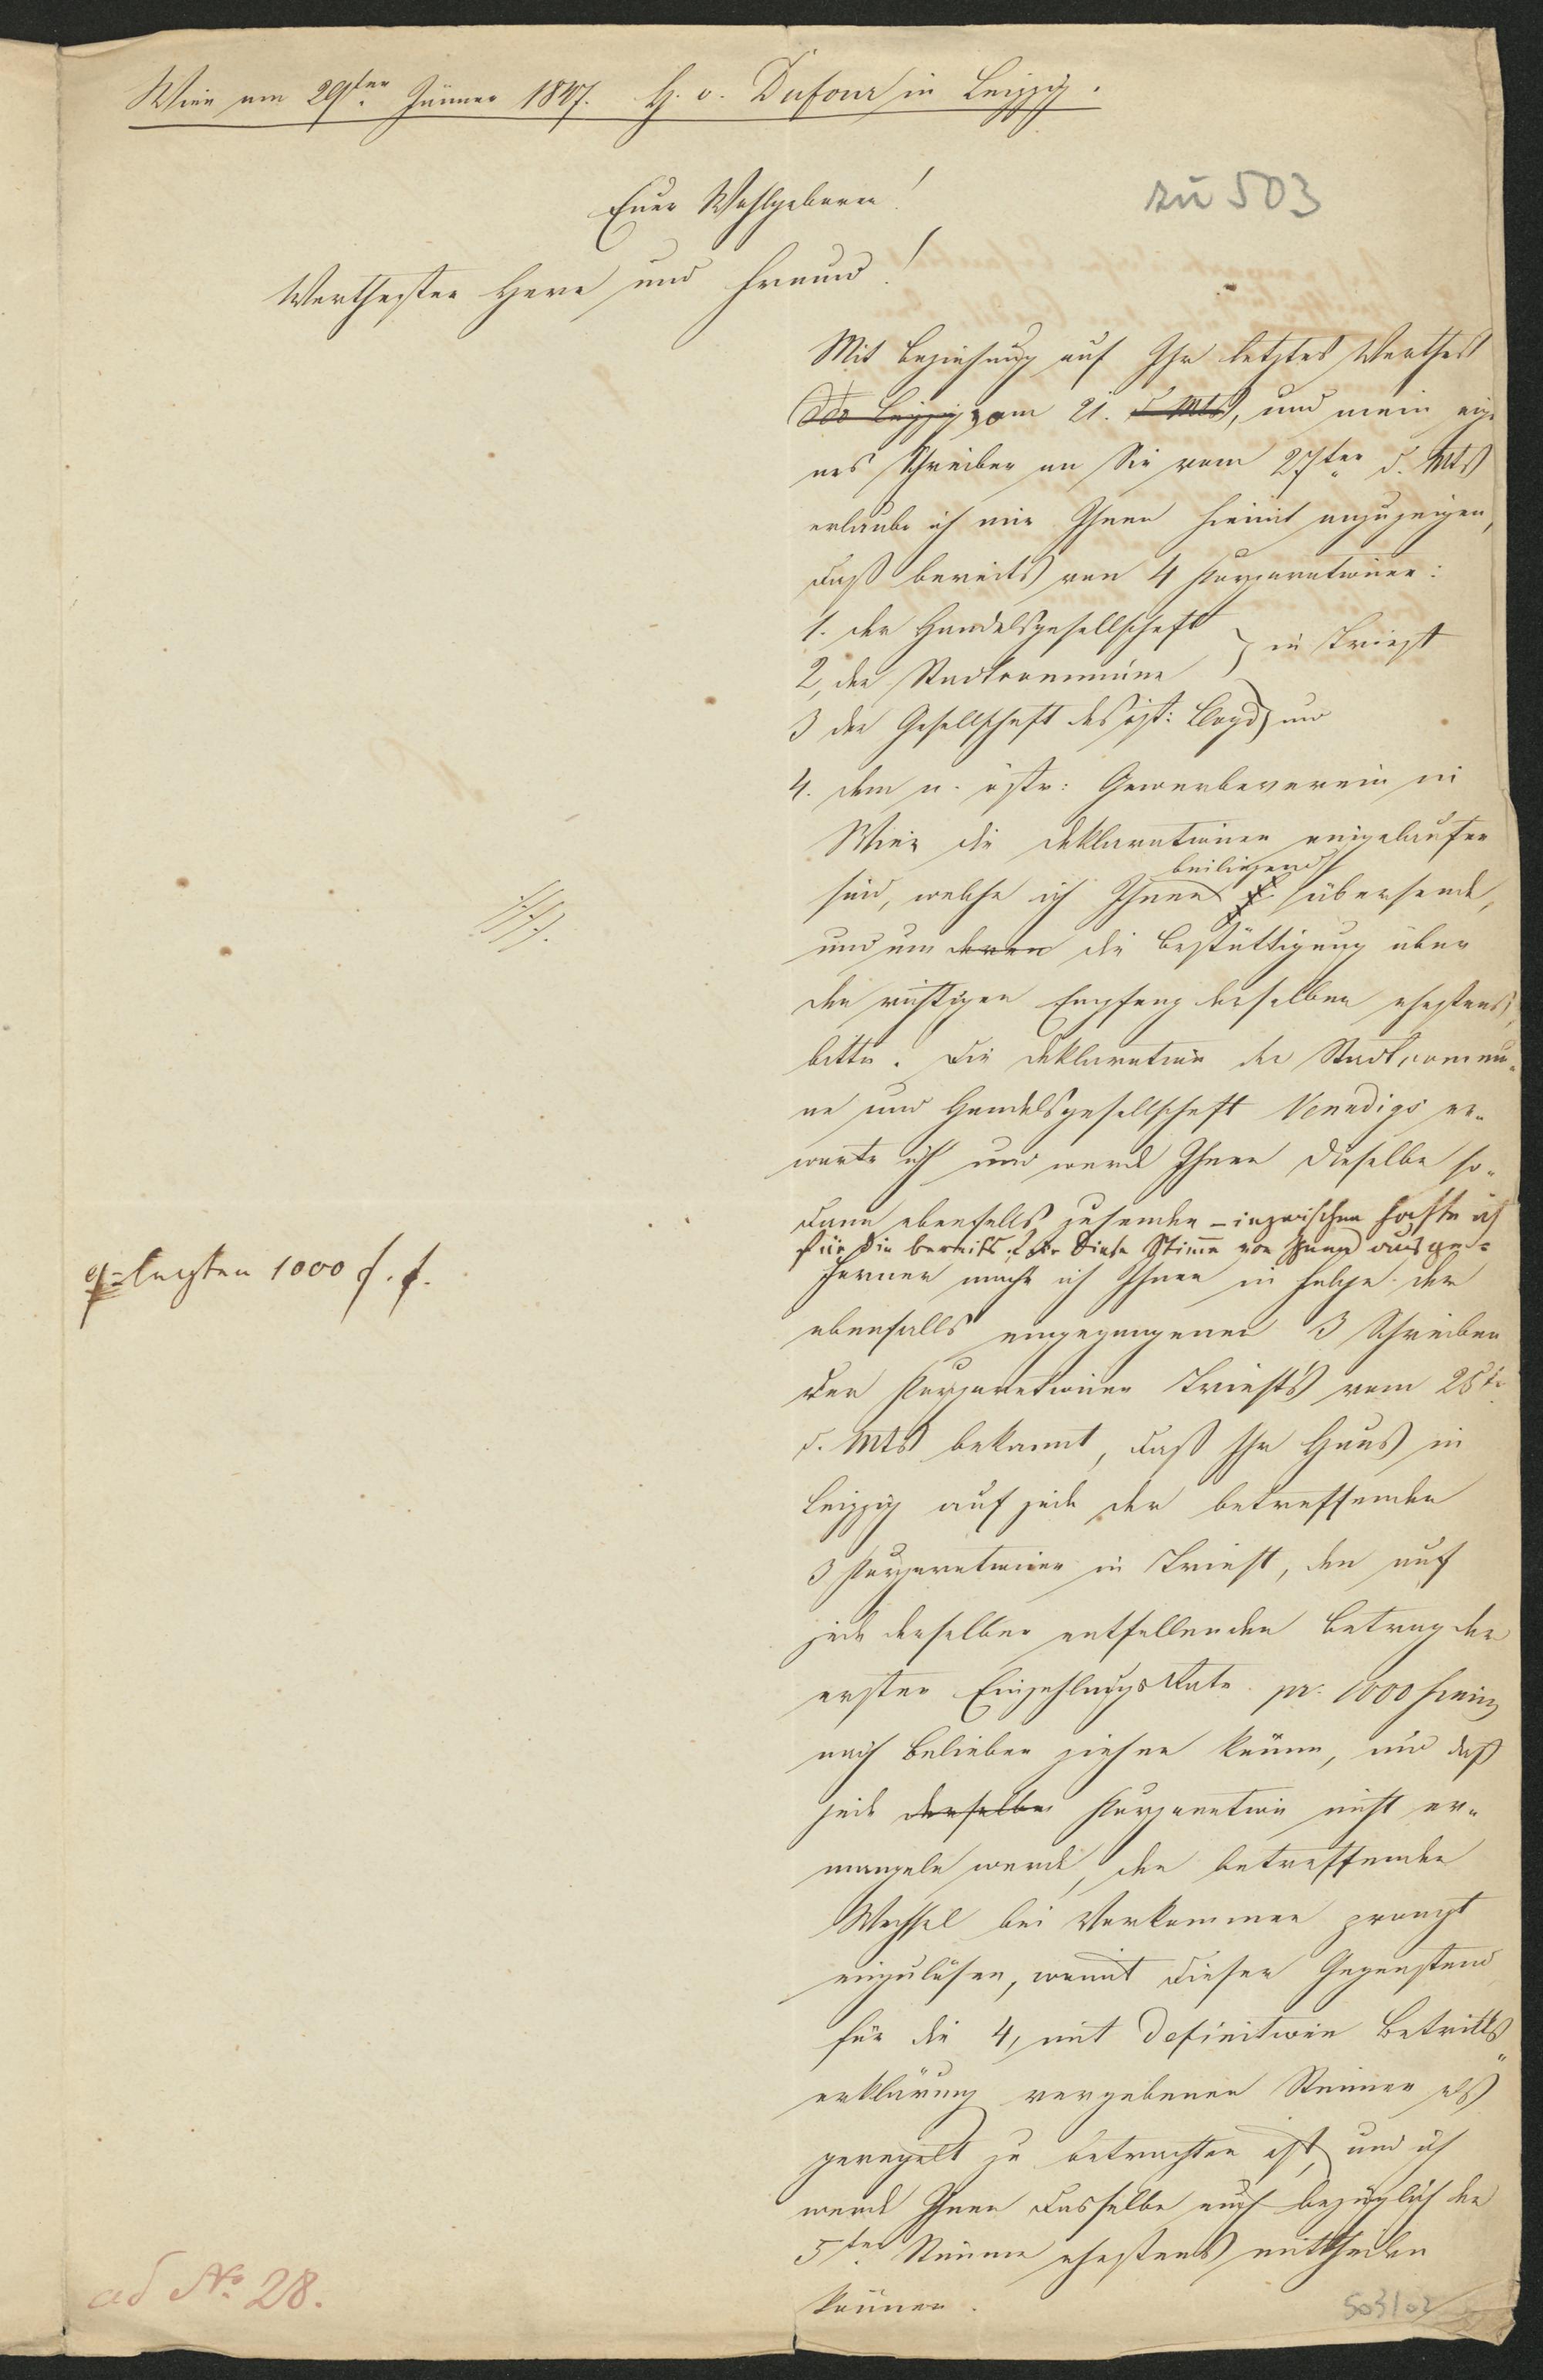 Wien am 29ten Jänner 1847. H. v. Dufour in Leipzig.
zu 503
Euer Wohlgeboren!
Werthester Herr und Freund!
Mit Beziehung auf Ihr letztes Werthes
ddo Leipzig vom 21. d. Mts, und mein eige-
nes Schreiben an Sie vom 27ten d. Mts
erlaube ich mir Ihnen hiemit anzuzeigen,
daß bereits von 4 Korporationen:
1. der Handelsgesellschaft
2, der Stadtcommune } in Triest
3 der Gesellschaft des öst: Lloyd) und
4. dem n. östr: Gewerbeverein in
Wien die Deklarationen eingelaufen
beiliegend
sind, welche ich Ihnen übersende,
und um deren die Bestättigung über
den richtigen Empfang derselben ehestens
bitte. Die Deklaration der Stadtcommu-
ne und Handelsgesellschaft Venedigs er-
warte ich und werde Ihnen dieselbe so-
dann ebenfalls zusenden – inzwischen hafte ich
für die bereits für diese Stimme von Ihnen ausge-
gelegten 1000 f. f.
Ferner mache ich Ihnen in Folge der
ebenfalls eingegangenen 3 Schreiben
der Korporationen Triest's vom 25t
d. Mts bekannt, daß Ihr Haus in
Leipzig auf jede der betreffenden
3 Korporationen in Triest, den auf
jede derselben entfallenden Betrag der
ersten Einzahlungs Rate pr. 1000
nach Belieben ziehen könne, und daß
jede derselben Korporation nicht er-
mangeln werde, den betreffenden
Wechsel bei Vorkommen prompt
einzulösen, womit dieser Gegenstand
für die 4, mit definitiven Beitritts
erklärung vergebenen Stimmen als
geregelt zu betrachten ist, und ich
werde Ihnen dasselbe auch bezüglich der
5ten Stimme ehestens mittheilen
können.
ad No 28.
503/02